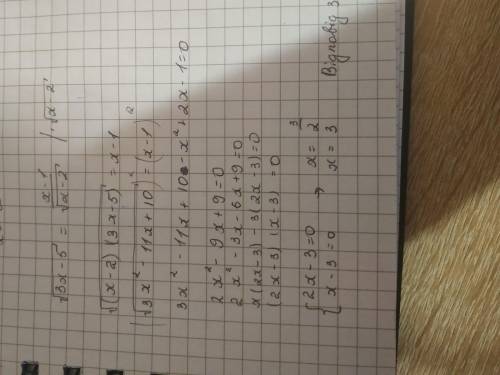 √3x-5 = x-1/√x-2 | ·√x-2
√(x-2)(3x-5) = x-1
(√3x²-11x+10)² = (x-1)²
3x²-11x+10-x²+2x-1=0
2x²-9x+9=0
2x²-3x-6x+9=0
x(2x-3)-3(2x-3)=0
(2x+3)(x-3)=0
{2x-3=0 → x=3/2
x-3=0 x=3
Відповідь 3